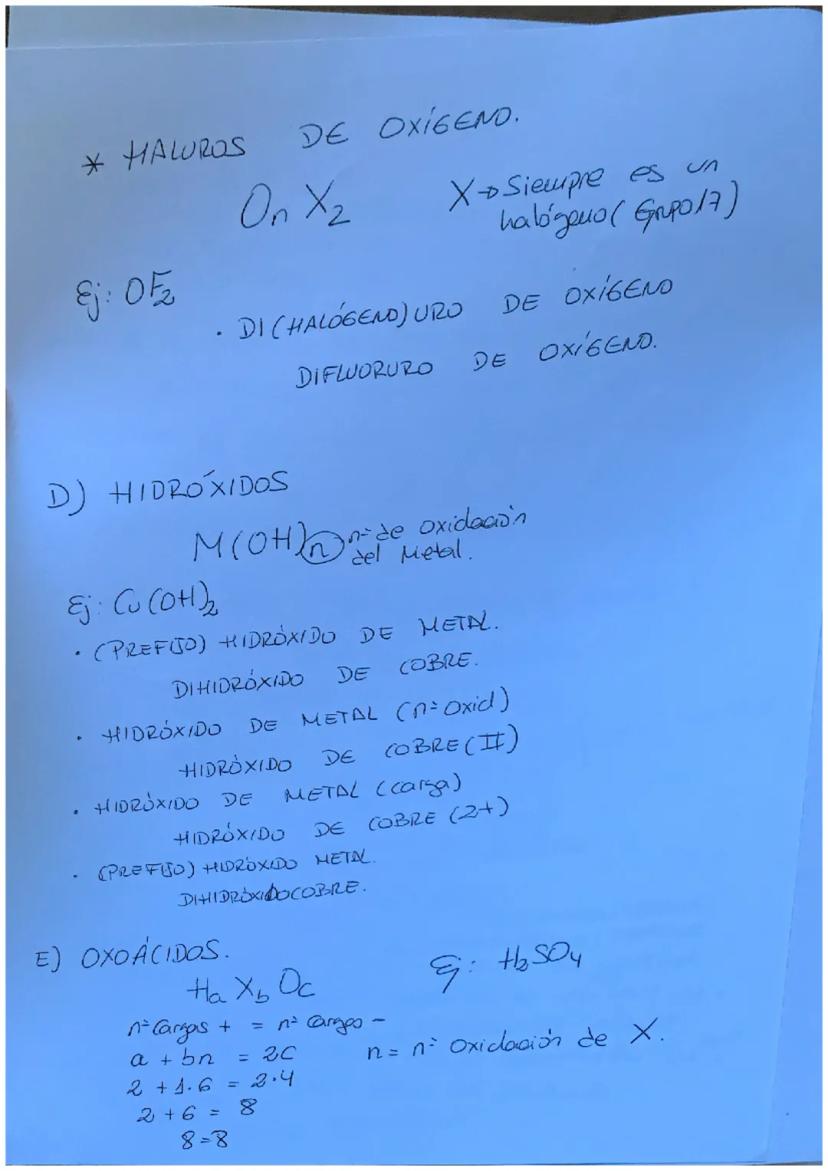 * HALUROS DE OXÍGENO.
On X2 X→ Siempre es un
halógeno (Grupo 17)
Ej: OF2
· DI(HALÓGENO)URO DE OXÍGENO
DIFLUORURO DE OXÍGENO.
D) HIDRÓXIDOS
M(OH)n nº de oxidación
del Metal.
Ej: Cu(OH)2
· (PREFIJO) HIDRÓXIDO DE METAL.
DIHIDRÓXIDO DE COBRE.
· HIDRÓXIDO DE METAL (nº oxid)
HIDRÓXIDO DE COBRE (II)
· HIDRÓXIDO DE METAL (carga)
HIDRÓXIDO DE COBRE (2+)
· (PREFIJO) HIDRÓXIDO METAL.
DIHIDRÓXIDOCOBRE.
E) OXOÁCIDOS.
Ha Xb Oc Ej: H2SO4
nº cargas + = nº cargas -
a + bn = 2c n = nº oxidación de X.
2 + 1·6 = 2·4
2 + 6 = 8
8 = 8